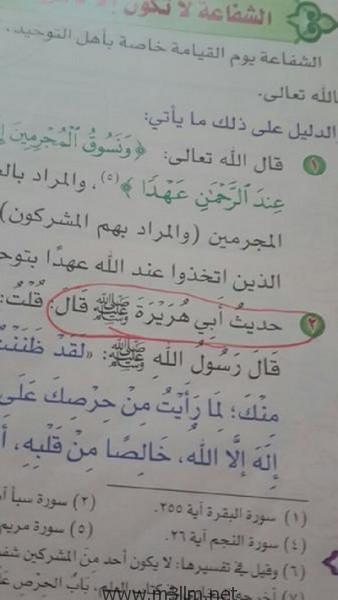 الشفاعة لا تكون إلا
الشفاعة يوم القيامة خاصة بأهل التوحيد،
الله تعالى.
الدليل على ذلك ما يأتي:
١ قال الله تعالى: ﴿وَنَسُوقُ الْمُجْرِمِينَ
عِندَ الرَّحْمَٰنِ عَهْدًا﴾(٥)، والمراد
المجرمين (والمراد بهم المشركون)
الذين اتخذوا عند الله عهدًا
٢ حديثُ أَبِي هُرَيْرَةَ ﷺ قَالَ: قُلْتُ:
قَالَ رَسُولُ اللهِ ﷺ: «لَقَدْ ظَنَنْتُ
مِنْكَ؛ لِمَا رَأَيْتُ مِنْ حِرْصِكَ عَلَى
إِلَهَ إِلَّا الله، خَالِصًا مِنْ قَلْبِهِ،
(١) سورة البقرة آية ٢٥٥. (٢) سورة سبأ
(٤) سورة النجم آية ٢٦. (٥) سورة مريم
(٦) وقيل في تفسيرها: لا يكون أحد من المشركين
كتاب العلم، بَابُ الحِرصِ
www.m3llm.net